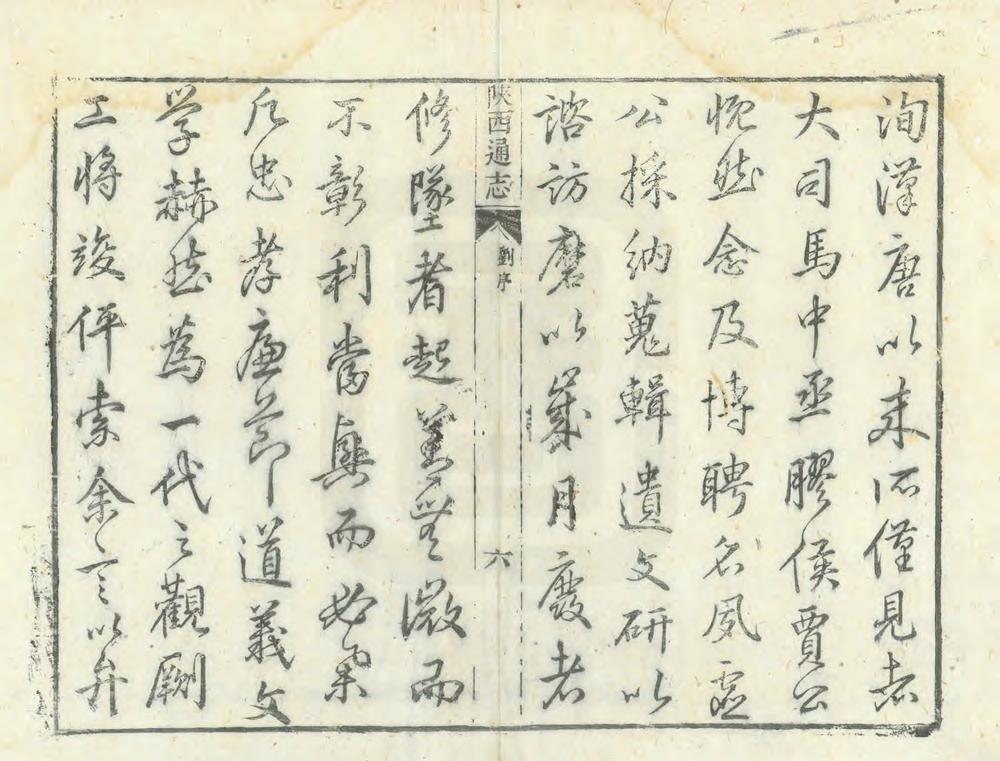 洵漢唐以来所僅見者
大司馬中丞膠侯賈公
慨然念及博聘名夙虛
公採納蒐輯遺文研以
諮訪磨以歲月廢者
陝西通志
劉序
六
修墜者起善無微而
不彰利當興而必舉
凡忠孝廉節道義文
学赫然為一代之觀劂
工將竣伻索余言以弁